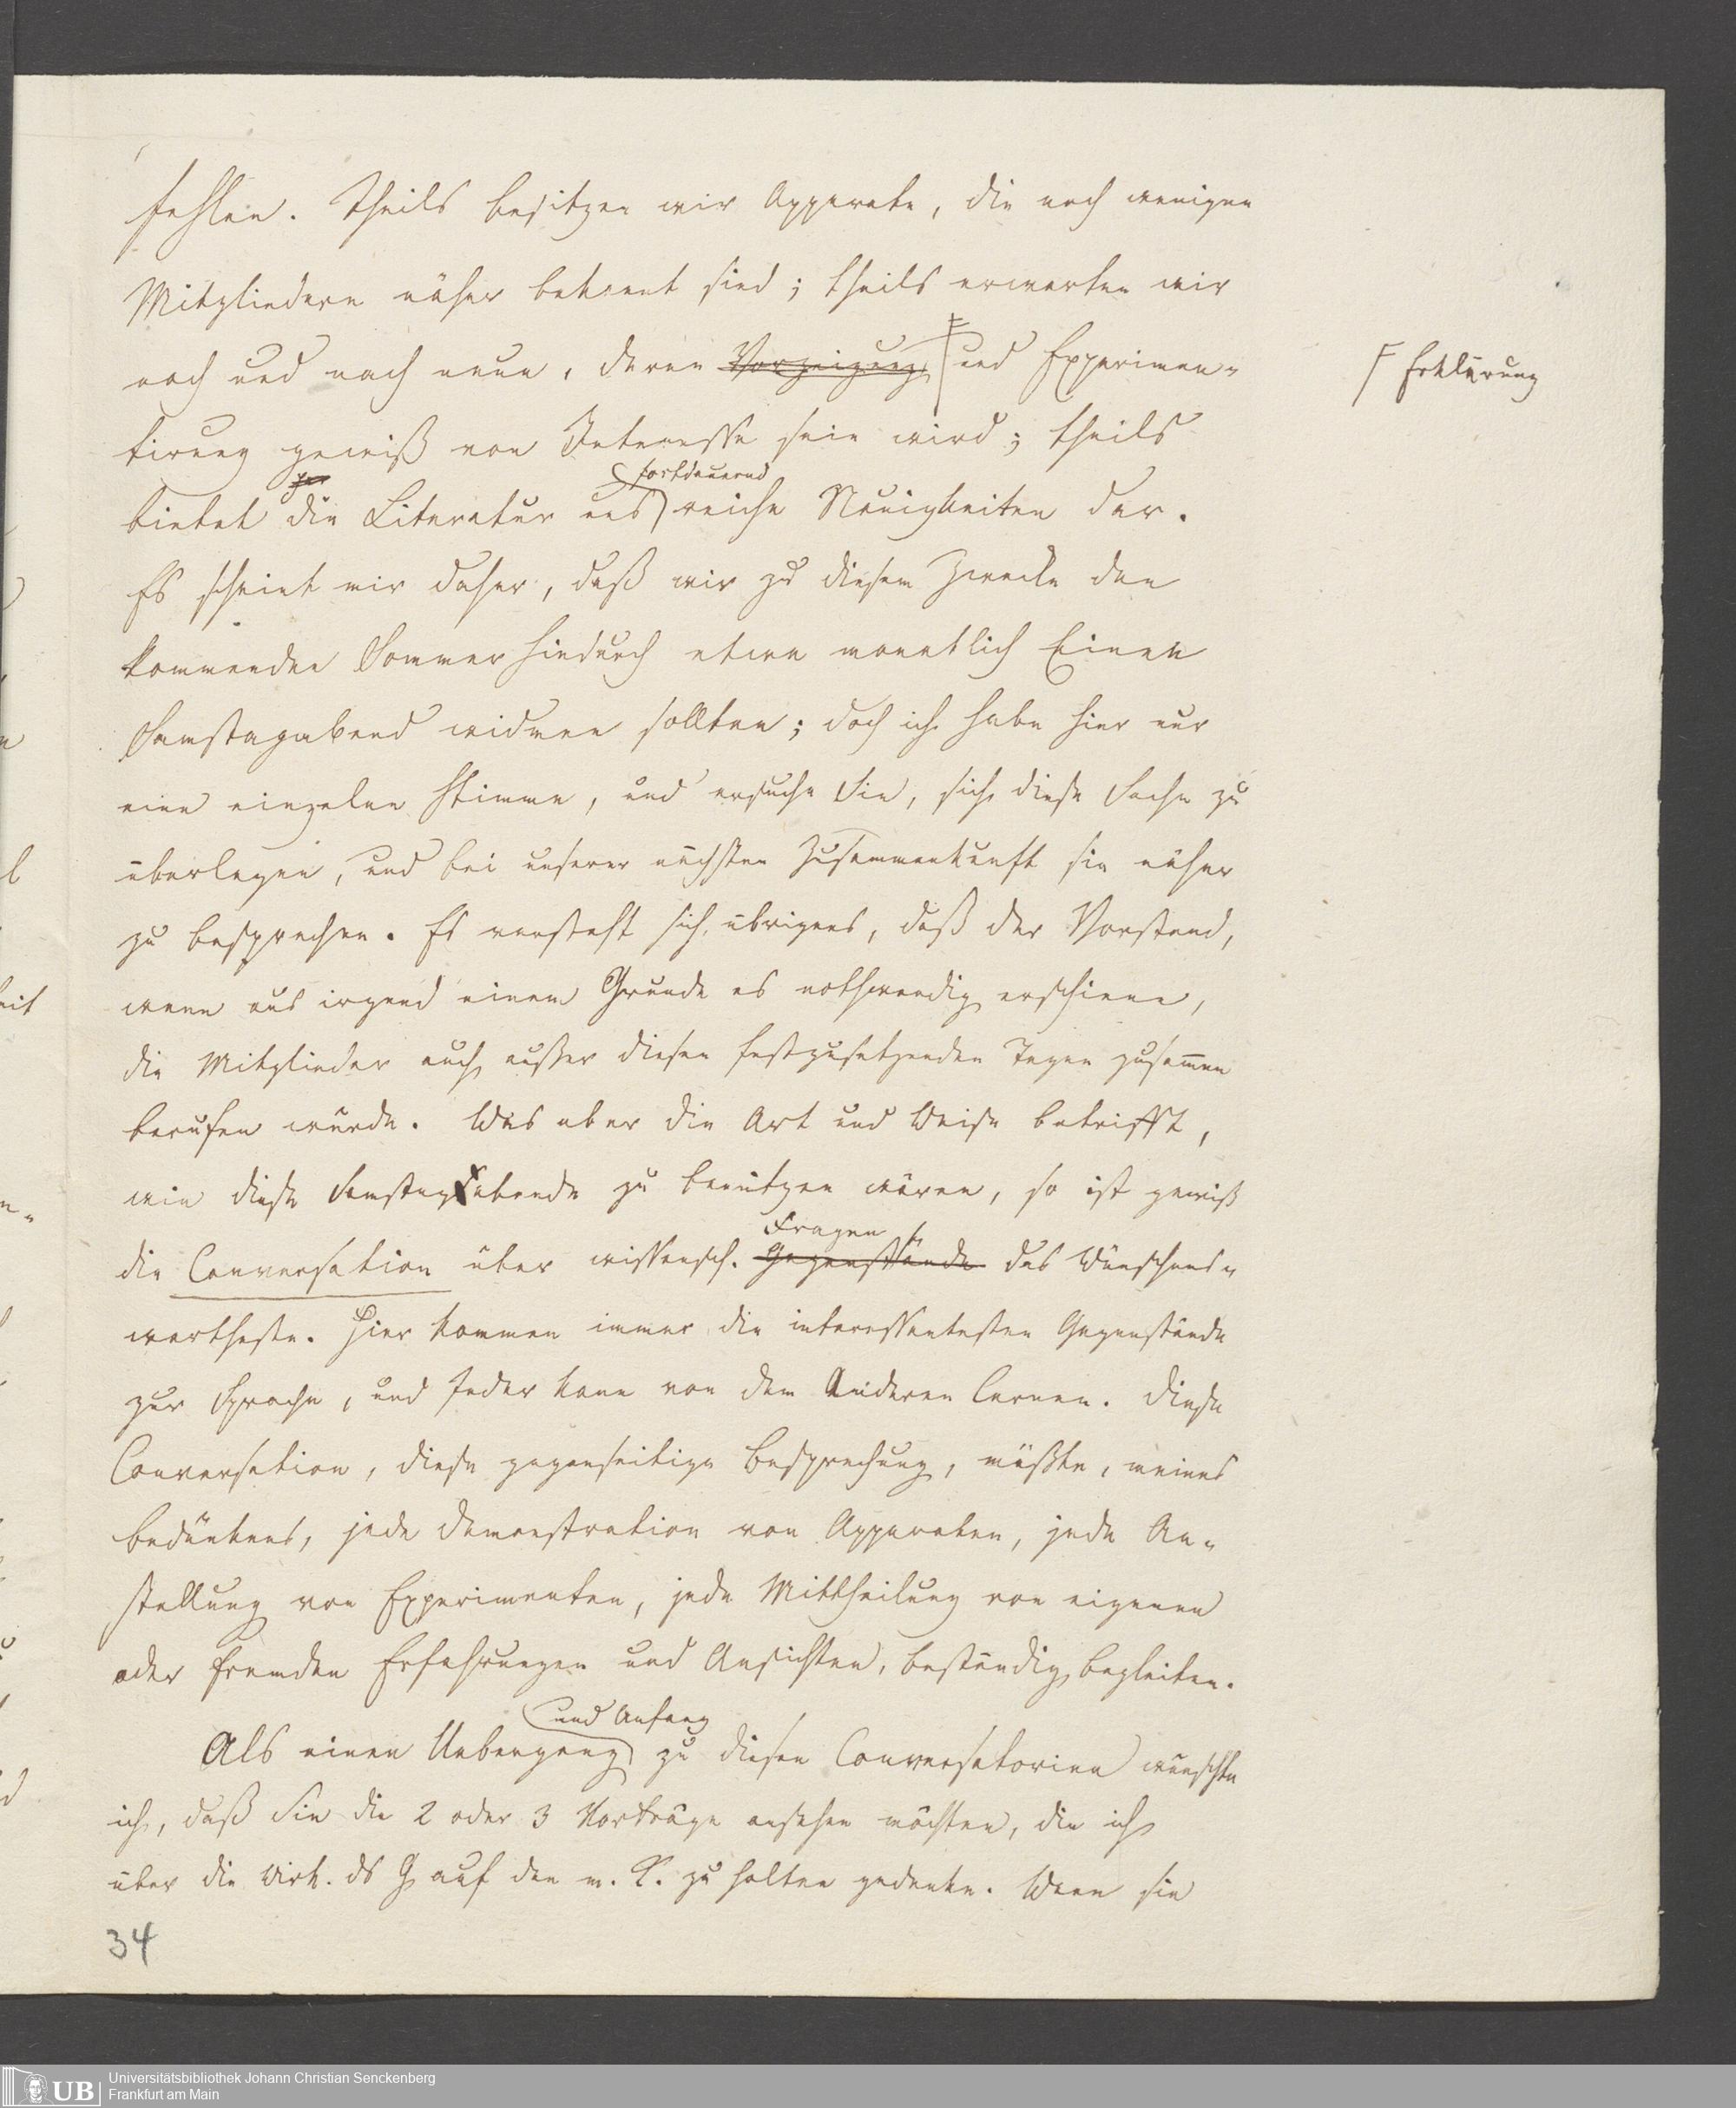 fehlen. Theils besitzen wir Apparate, die noch wenigen
Mitgliedern näher bekannt sind; theils erwarten wir
nach und nach neue, deren Vorzeigung und Experimen-
Erklärung
tirung gewiß von Interesse sein wird; theils
fortdauernd
bietet die Literatur uns reiche Neuigkeiten dar.
Es scheint mir daher, daß wir zu diesem Zwecke den
kommenden Sommer hindurch etwa monatlich Einen
Samstagabend widmen sollten; doch ich habe hier nur
eine einzelne Stimme, und ersuche Sie, sich diese Sache zu
überlegen, und bei unserer nächsten Zusammenkunft sie näher
zu besprechen. Es versteht sich übrigens, daß der Vorstand,
wenn aus irgend einem Grunde es nothwendig erschiene,
die Mitglieder auch außer diesen festzusetzenden Tagen zusam̄en
berufen würde. Was aber die Art und Weise betrifft,
wie diese Samstagabende zu benützen wären, so ist gewiß
Fragen
die Conversation über wissensch. Gegenstände das Wünschens-
wertheste. Hier kommen immer die interessantesten Gegenstände
zur Sprache, und Jeder kann von dem Anderen lernen. Diese
Conversation, diese gegenseitige Besprechung, müßte, meines
Bedünkens, jede Demonstration von Apparaten, jede An-
stellung von Experimenten, jede Mittheilung von eigenen
oder fremden Erfahrungen und Ansichten, beständig begleiten.
und Anfang
Als einen Uebergang zu diesen Conversatorien wünschte
ich, daß Sie die 2 oder 3 Vorträge ansehen möchten, die ich
über die Wirk. ds G auf den m. K. zu halten gedenke. Wenn sie
34
UB
Universitätsbibliothek Johann Christian Senckenberg
Frankfurt am Main